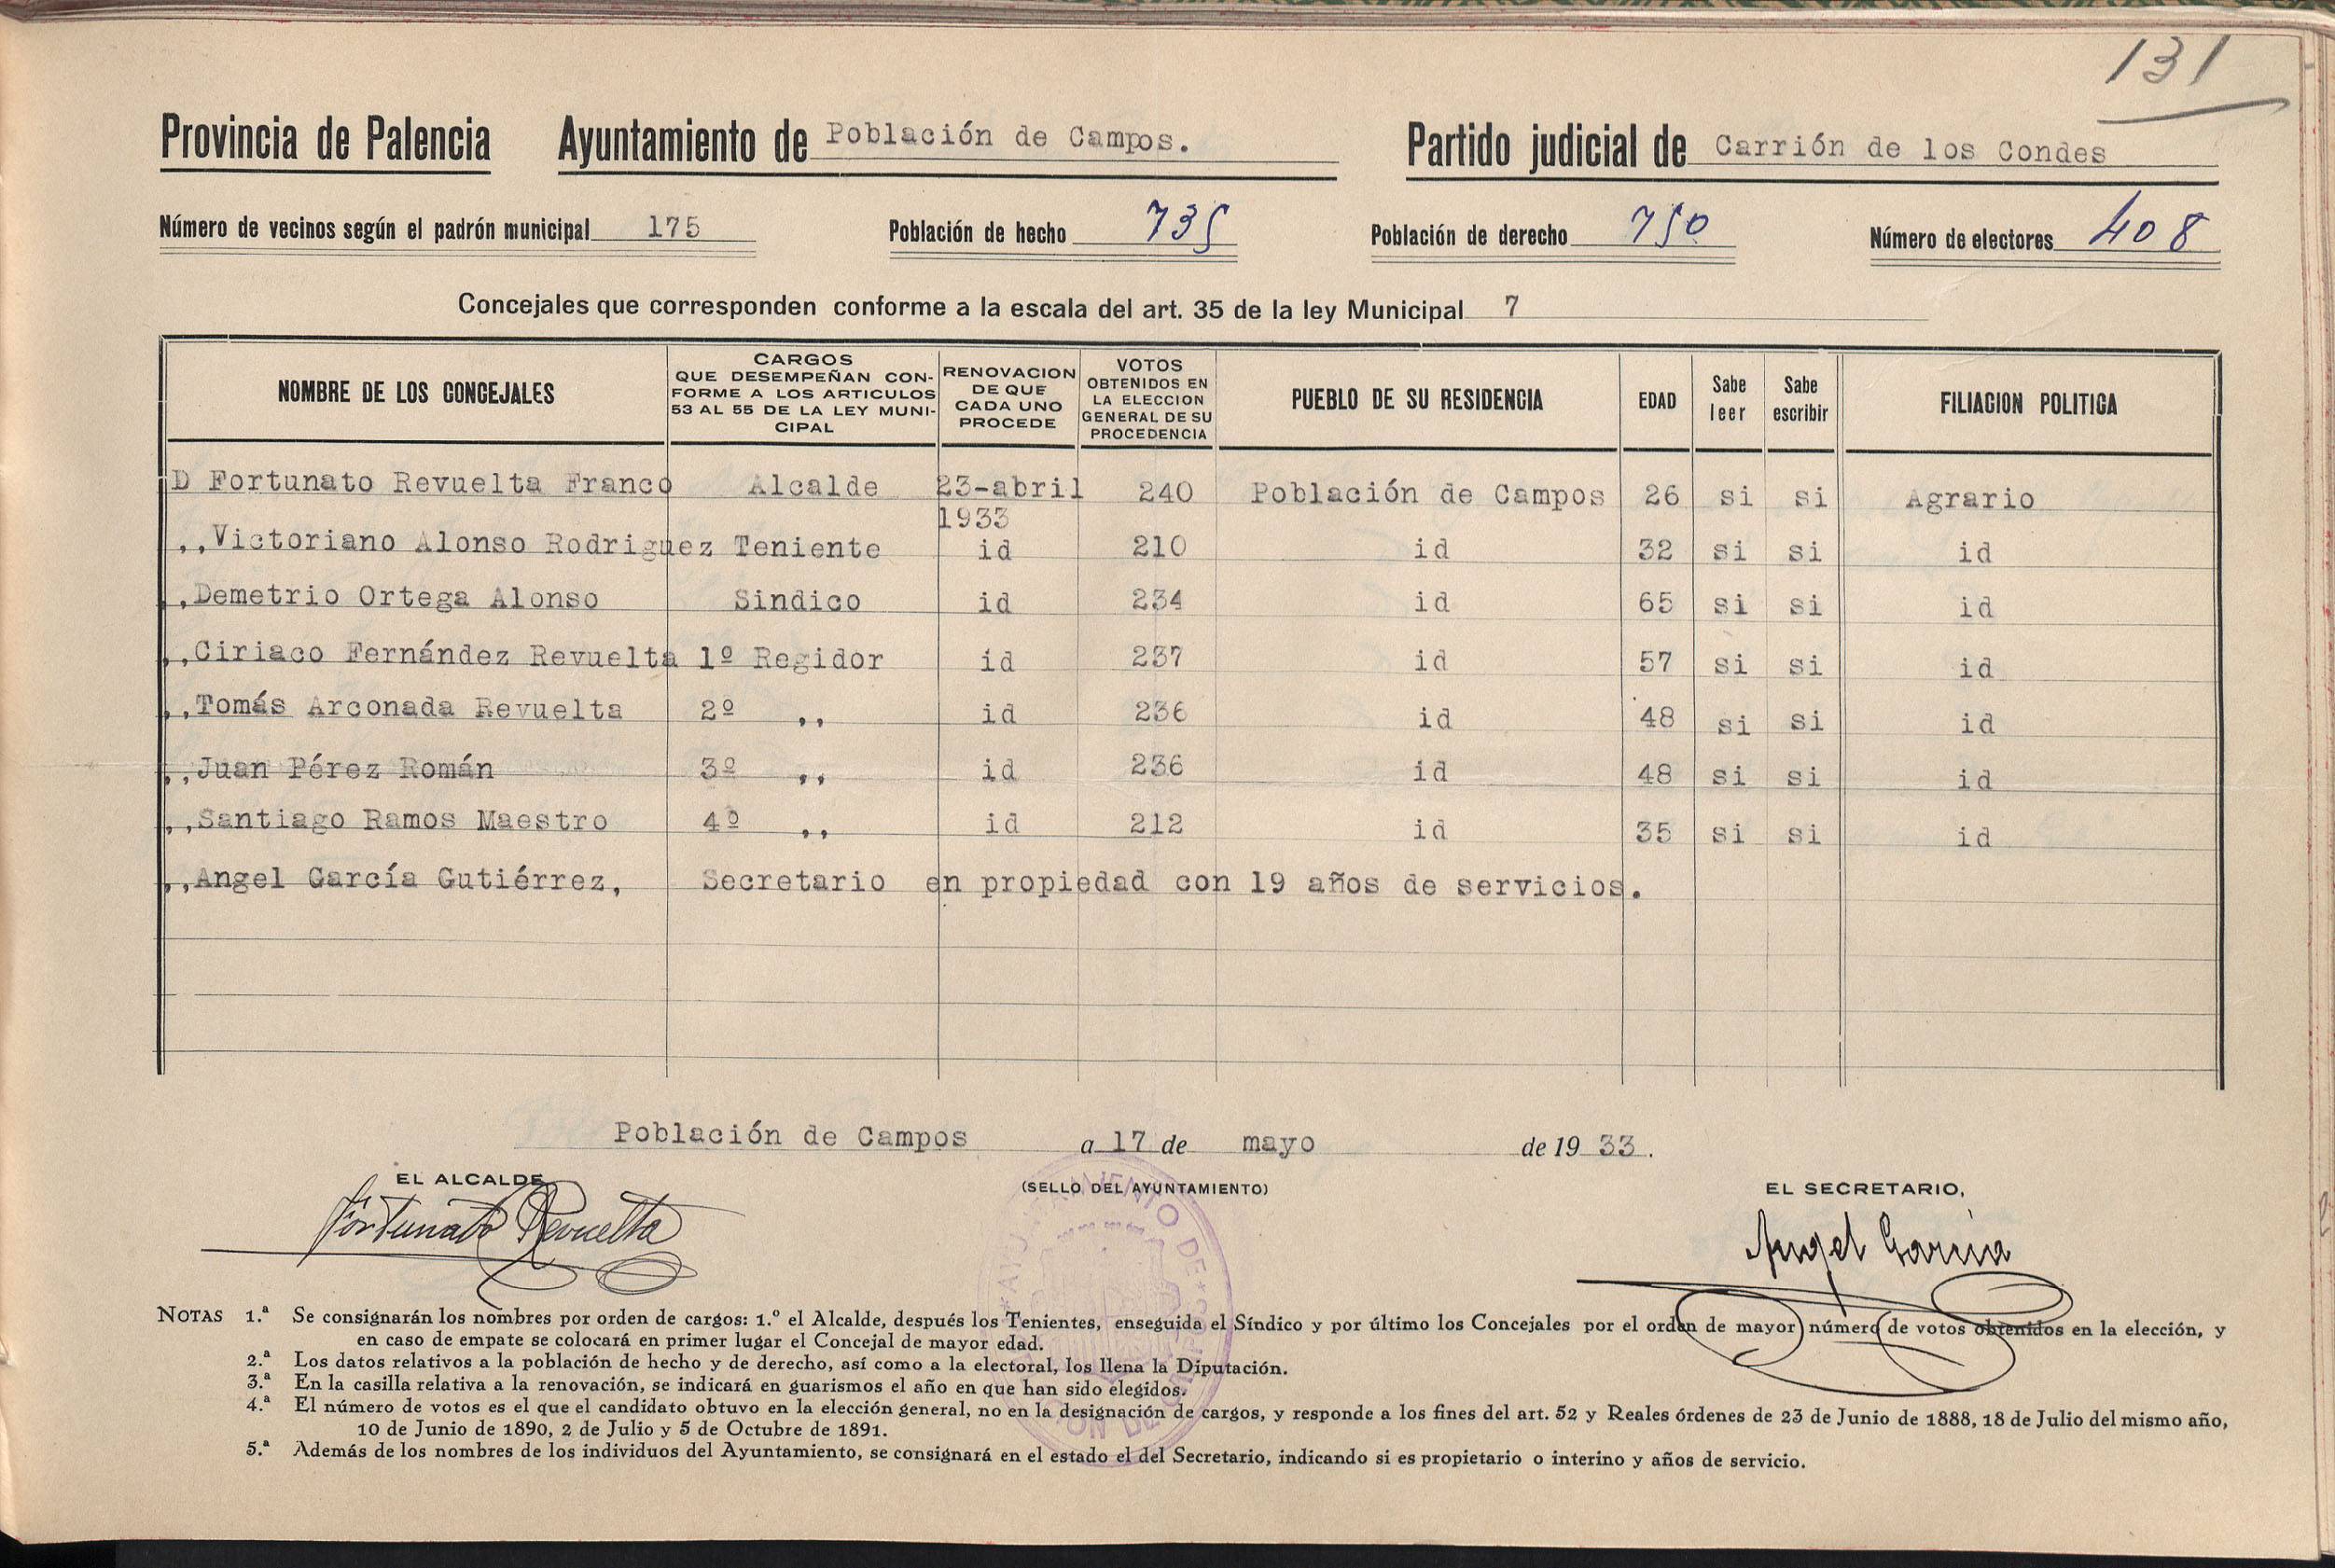 131
Provincia de Palencia Ayuntamiento de Población de Campos. Partido judicial de Carrión de los Condes
Número de vecinos según el padrón municipal 175 Población de hecho 735 Población de derecho 750 Número de electores 408
Concejales que corresponden conforme a la escala del art. 35 de la ley Municipal 7
NOMBRE DE LOS CONCEJALES
CARGOS
QUE DESEMPEÑAN CON-
FORME A LOS ARTICULOS
53 AL 55 DE LA LEY MUNI-
CIPAL
RENOVACION
DE QUE
CADA UNO
PROCEDE
VOTOS
OBTENIDOS EN
LA ELECCION
GENERAL DE SU
PROCEDENCIA
PUEBLO DE SU RESIDENCIA
EDAD
Sabe
leer
Sabe
escribir
FILIACION POLITICA
D Fortunato Revuelta Franco Alcalde 23-abril 240 Población de Campos 26 si si Agrario
1933
,,Victoriano Alonso Rodriguez Teniente id 210 id 32 si si id
,,Demetrio Ortega Alonso Sindico id 234 id 65 si si id
,,Ciriaco Fernández Revuelta 1º Regidor id 237 id 57 si si id
,,Tomás Arconada Revuelta 2º ,, id 236 id 48 si si id
,,Juan Pérez Román 3º ,, id 236 id 48 si si id
,,Santiago Ramos Maestro 4º ,, id 212 id 35 si si id
,,Angel García Gutiérrez, Secretario en propiedad con 19 años de servicios.
Población de Campos a 17 de mayo de 19 33.
EL ALCALDE (SELLO DEL AYUNTAMIENTO) EL SECRETARIO,
Fortunato Revuelta Angel García
NOTAS 1.ª Se consignarán los nombres por orden de cargos: 1.º el Alcalde, después los Tenientes, enseguida el Síndico y por último los Concejales por el orden de mayor número de votos obtenidos en la elección, y
en caso de empate se colocará en primer lugar el Concejal de mayor edad.
2.ª Los datos relativos a la población de hecho y de derecho, así como a la electoral, los llena la Diputación.
3.ª En la casilla relativa a la renovación, se indicará en guarismos el año en que han sido elegidos.
4.ª El número de votos es el que el candidato obtuvo en la elección general, no en la designación de cargos, y responde a los fines del art. 52 y Reales órdenes de 23 de Junio de 1888, 18 de Julio del mismo año,
10 de Junio de 1890, 2 de Julio y 5 de Octubre de 1891.
5.ª Además de los nombres de los individuos del Ayuntamiento, se consignará en el estado el del Secretario, indicando si es propietario o interino y años de servicio.